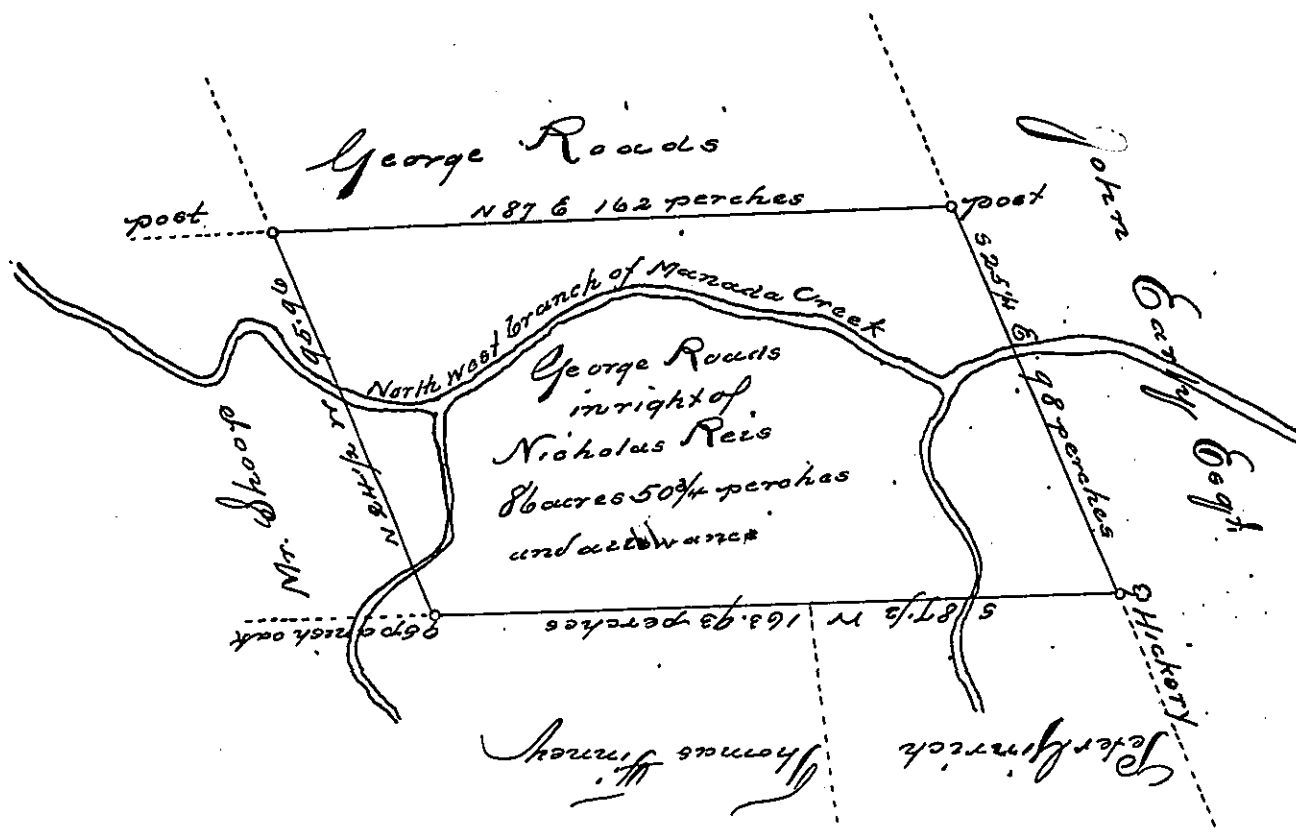 George Roads
post
N 87 E 162 perches
post
John Early Esqr.
S 25 1/4 E. 98 perches
North West branch of Manada Creek
George Roads
in right of
Nicholas Reis
86 acres 50 3/4 perches
and allowance
N 24 1/2 W 95.9
Mr. Shoop
a Spanish oak
S 87 1/2 W 163.93 perches
a Hickory
Thomas Finney
Peter Gimrich